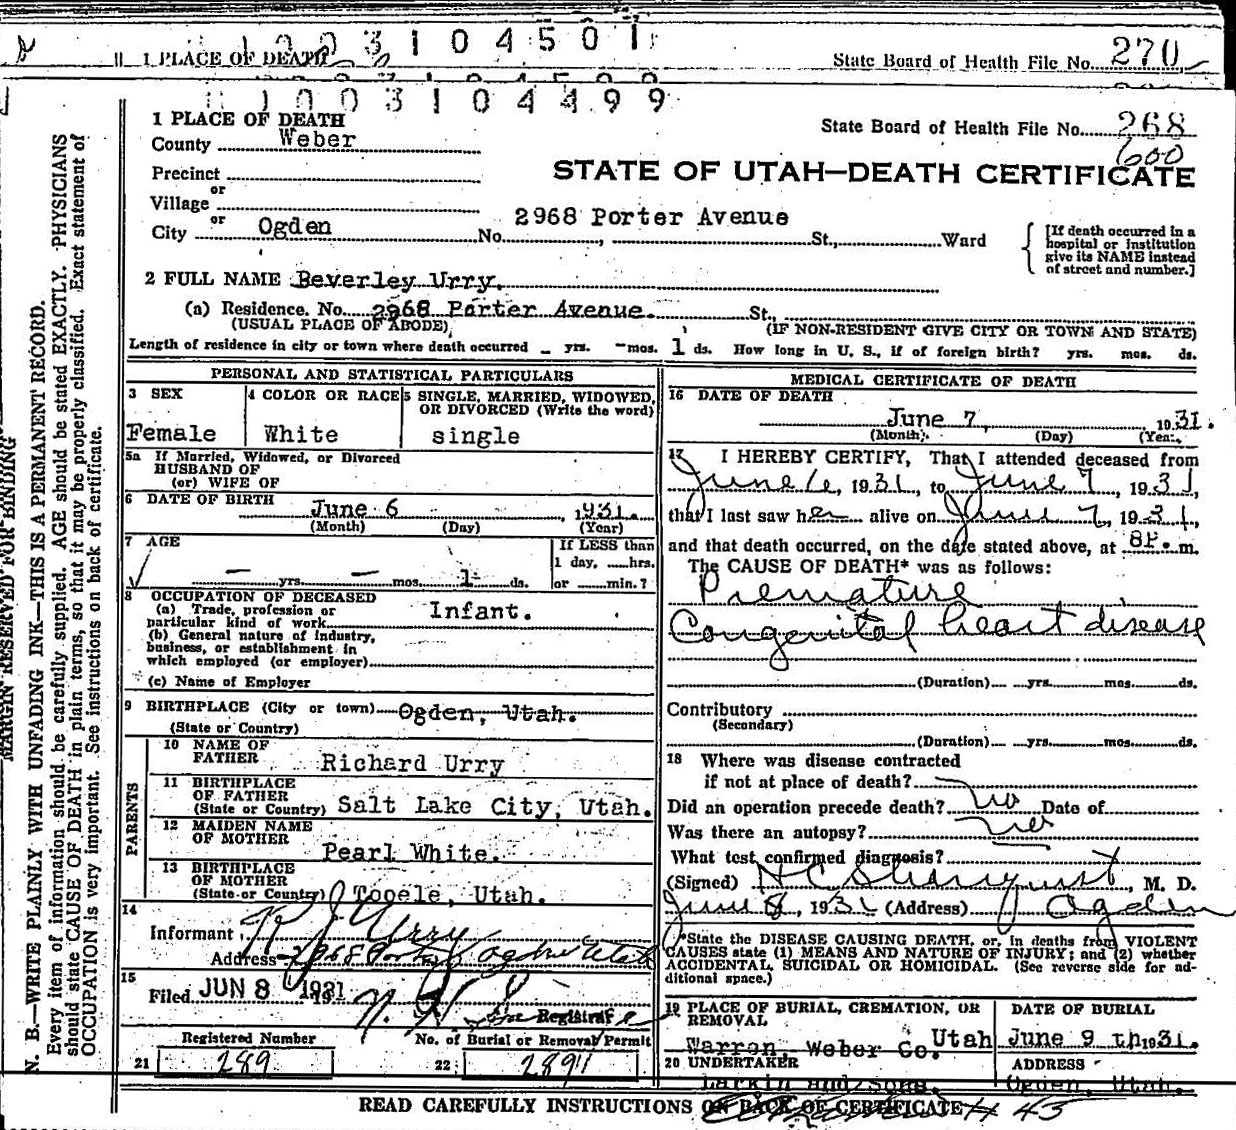 1003104501
1 PLACE OF DEATH
State Board of Health File No. 270
1003104499
1 PLACE OF DEATH
County Weber
State Board of Health File No. 268
600
STATE OF UTAH—DEATH CERTIFICATE
Precinct
or
Village
or
City Ogden No. 2968 Porter Avenue St., Ward
[If death occurred in a
hospital or institution
give its NAME instead
of street and number.]
2 FULL NAME Beverley Urry.
(a) Residence. No. 2968 Porter Avenue. St.,
(USUAL PLACE OF ABODE)
(IF NON-RESIDENT GIVE CITY OR TOWN AND STATE)
Length of residence in city or town where death occurred – yrs. – mos. 1 ds. How long in U. S., if of foreign birth? yrs. mos. ds.
PERSONAL AND STATISTICAL PARTICULARS
3 SEX
Female
4 COLOR OR RACE
White
5 SINGLE, MARRIED, WIDOWED,
OR DIVORCED (Write the word)
single
5a If Married, Widowed, or Divorced
HUSBAND OF
(or) WIFE OF
6 DATE OF BIRTH June 6 1931.
(Month) (Day) (Year)
7 AGE
— yrs. — mos. 1 ds.
If LESS than
1 day, ......hrs.
or ......min.?
8 OCCUPATION OF DECEASED
(a) Trade, profession or
particular kind of work Infant.
(b) General nature of industry,
business, or establishment in
which employed (or employer)
(c) Name of Employer
9 BIRTHPLACE (City or town) Ogden, Utah.
(State or Country)
PARENTS
10 NAME OF
FATHER Richard Urry
11 BIRTHPLACE
OF FATHER
(State or Country) Salt Lake City, Utah.
12 MAIDEN NAME
OF MOTHER Pearl White.
13 BIRTHPLACE
OF MOTHER
(State or Country) Tooele, Utah.
14
Informant R J Urry
Address 2968 Porter Ogden Utah
15
Filed JUN 8 1931
Registrar
Registered Number
21 289
No. of Burial or Removal Permit
22
MEDICAL CERTIFICATE OF DEATH
16 DATE OF DEATH
June 7, 1931.
(Month) (Day) (Year)
17 I HEREBY CERTIFY, That I attended deceased from
June 6, 1931, to June 7, 1931,
that I last saw her alive on June 7, 1931,
and that death occurred, on the date stated above, at 8P. m.
The CAUSE OF DEATH* was as follows:
Premature
Congenital heart disease
(Duration) yrs. mos. ds.
Contributory
(Secondary)
(Duration) yrs. mos. ds.
18 Where was disease contracted
if not at place of death?
Did an operation precede death? no Date of
Was there an autopsy? no
What test confirmed diagnosis?
(Signed) , M. D.
June 8, 1931 (Address) Ogden
*State the DISEASE CAUSING DEATH, or, in deaths from VIOLENT
CAUSES state (1) MEANS AND NATURE OF INJURY; and (2) whether
ACCIDENTAL, SUICIDAL OR HOMICIDAL. (See reverse side for ad-
ditional space.)
19 PLACE OF BURIAL, CREMATION, OR
REMOVAL
Warren, Weber Co. Utah
DATE OF BURIAL
June 9 th 1931.
20 UNDERTAKER
Larkin and Sons.
ADDRESS
Ogden, Utah.
READ CAREFULLY INSTRUCTIONS ON BACK OF CERTIFICATE # 45
MARGIN RESERVED FOR BINDING
N. B.—WRITE PLAINLY WITH UNFADING INK—THIS IS A PERMANENT RECORD.
Every item of information should be carefully supplied. AGE should be stated EXACTLY. PHYSICIANS
should state CAUSE OF DEATH in plain terms, so that it may be properly classified. Exact statement of
OCCUPATION is very important. See instructions on back of certificate.